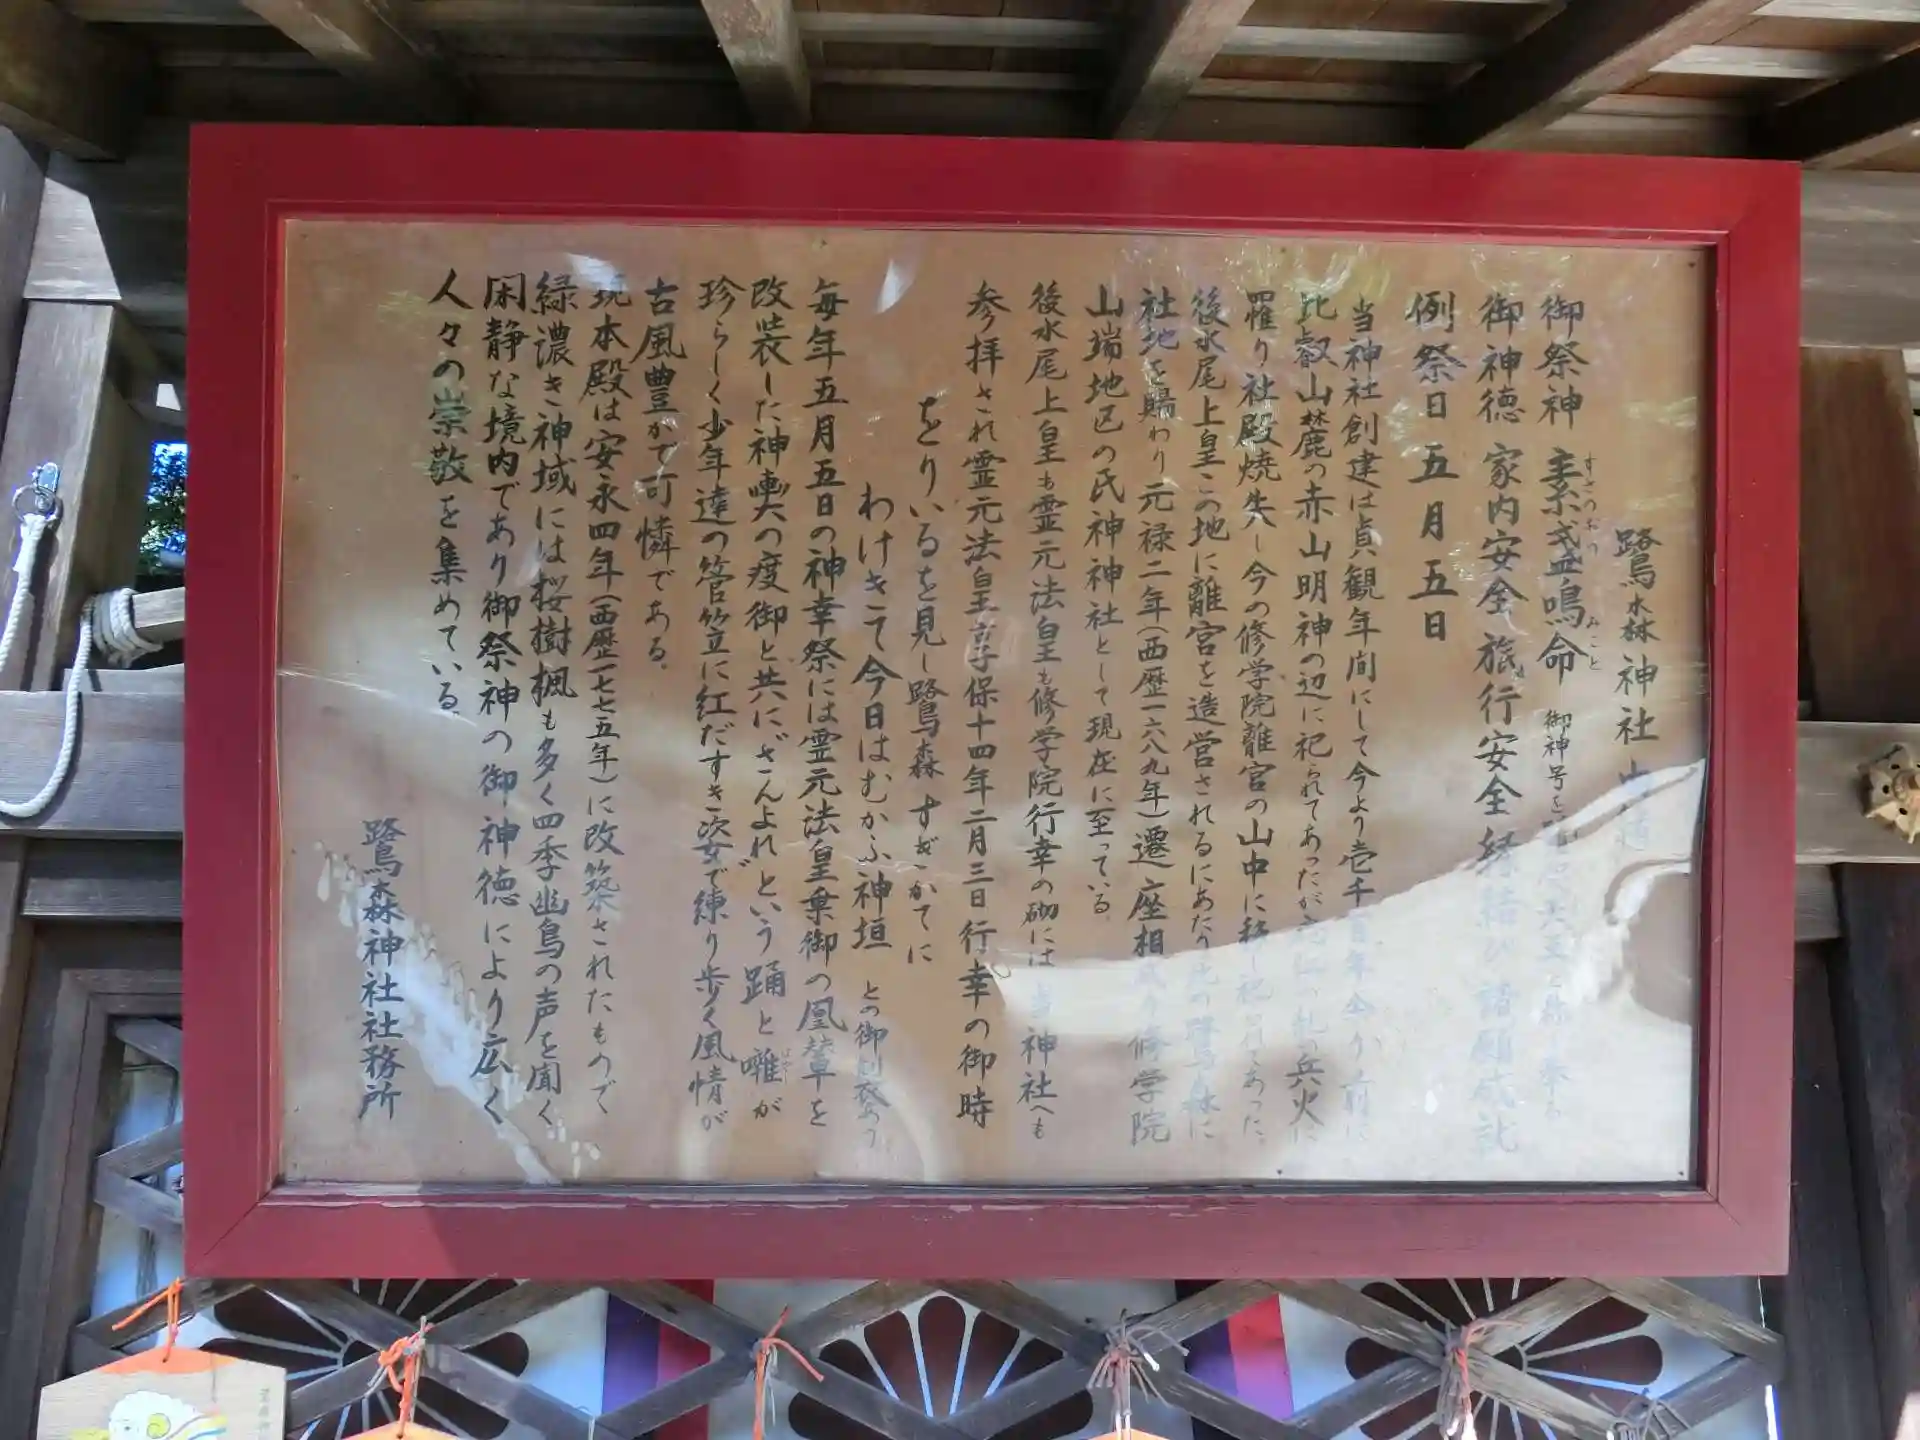 鷺森神社 由緒
御祭神 素戔嗚命 御神号を
すさのおの みこと
御神徳 家内安全 旅行安全 縁結び 諸願成就
例祭日 五月五日
当神社創建は貞観年間にして今より壱千百年余り前に
比叡山麓の赤山明神の辺に祀られてあったが応仁の乱の兵火に
罹り社殿焼失し今の修学院離宮の山中に移し祀られてあった。
後水尾上皇この地に離宮を造営されるにあたり此の鷺森に
社地を賜わり元禄二年(西歴一六八九年)遷座相成り修学院
山端地区の氏神神社として現在に至っている。
後水尾上皇も霊元法皇も修学院行幸の砌には当神社へも
参拝され霊元法皇享保十四年二月三日行幸の御時
をりいるを見し鷺森すぎがてに
わけきて今日はむかふ神垣 との御製あり
毎年五月五日の神幸祭には霊元法皇乗御の鳳輦を
改装した神輿の渡御と共に"さんよれ"という踊と囃が
はやし
珍らしく少年達の菅笠に紅だすき姿で練り歩く風情が
古風豊かで可憐である。
現本殿は安永四年(西歴一七七五年)に改築されたもので
緑濃き神域には桜樹楓も多く四季幽鳥の声を聞く
閑静な境内であり御祭神の御神徳により広く
人々の崇敬を集めている。
鷺森神社社務所